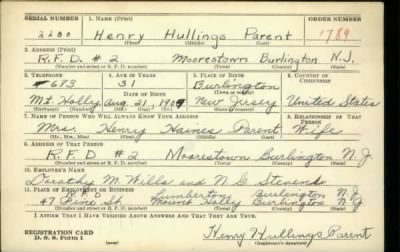 SERIAL NUMBER 1. NAME (Print) ORDER NUMBER
2200 Henry Hullings Parent 1789
(First) (Middle) (Last)
2. ADDRESS (Print)
R.F.D. #2 Moorestown Burlington N.J.
(Number and street or R. F. D. number) (Town) (County) (State)
3. TELEPHONE 4. AGE IN YEARS 5. PLACE OF BIRTH 6. COUNTRY OF CITIZENSHIP
673 31 Burlington
DATE OF BIRTH (Town or county)
Mt. Holly Aug. 21, 1909 New Jersey United States
(Exchange) (Mo.) (Day) (Yr.) (State or country)
7. NAME OF PERSON WHO WILL ALWAYS KNOW YOUR ADDRESS 8. RELATIONSHIP OF THAT PERSON
Mrs. Henry Haines Parent Wife
(Mr., Mrs., Miss) (First) (Middle) (Last)
9. ADDRESS OF THAT PERSON
R.F.D. #2 Moorestown Burlington N.J.
(Number and street or R. F. D. number) (Town) (County) (State)
10. EMPLOYER'S NAME
Dorothy M. Wills and N G
11. PLACE OF EMPLOYMENT OR BUSINESS
R F D Lumberton Burlington N.J.
47 Pine St. Mount Holly Burlington N.J.
(Number and street or R. F. D. number) (Town) (County) (State)
I AFFIRM THAT I HAVE VERIFIED ABOVE ANSWERS AND THAT THEY ARE TRUE.
REGISTRATION CARD
D. S. S. Form 1 Henry Hullings Parent
(over) (Registrant's signature)